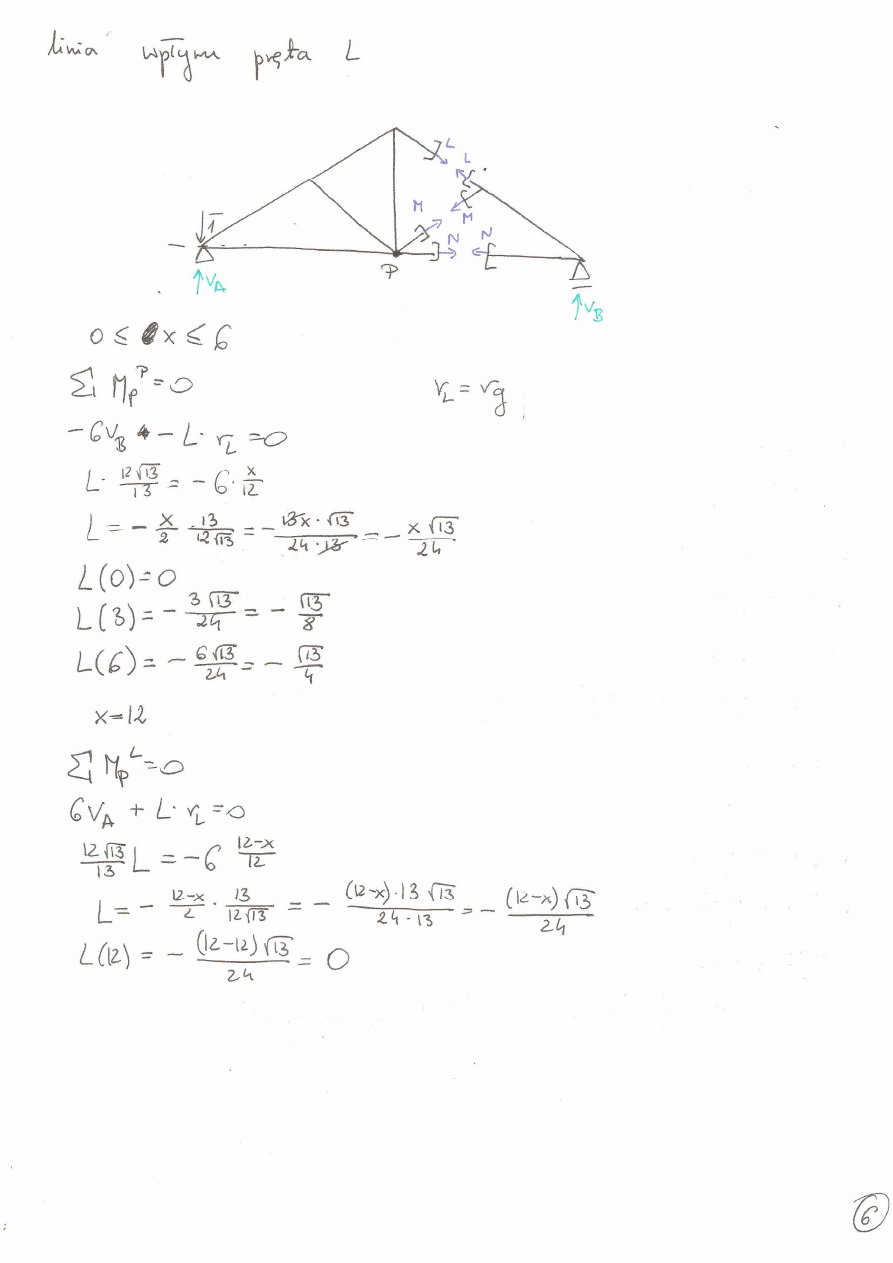 linia wpływu pręta L
L
L
M
M
1
N
N
P
V_A
V_B
0 ≤ x ≤ 6
Σ M_P^P = 0
r_L = r_g
-6V_B - L · r_L = 0
L · 12√13/13 = -6 · x/12
L = - x/2 · 13/12√13 = - 13x · √13/24 · 13 = - x√13/24
L(0) = 0
L(3) = - 3√13/24 = - √13/8
L(6) = - 6√13/24 = - √13/4
x = 12
Σ M_P^L = 0
6V_A + L · r_L = 0
12√13/13 L = -6 12-x/12
L = - 12-x/2 · 13/12√13 = - (12-x) · 13 √13/24 · 13 = - (12-x)√13/24
L(12) = - (12-12)√13/24 = 0
6